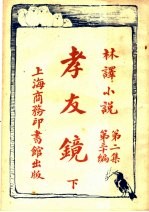 林譯小說
第二集
第二十編
孝友鏡
下
上海商務印書館出版